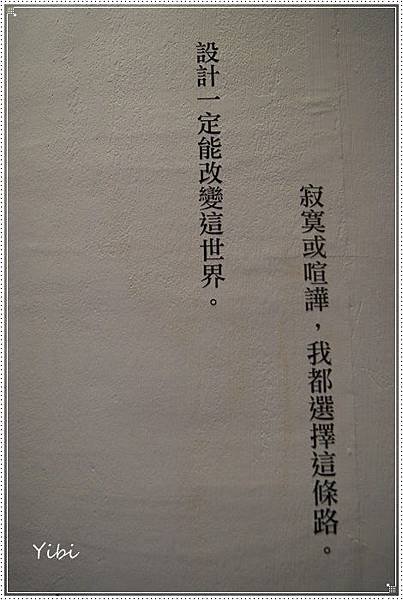 寂寞或喧譁，我都選擇這條路。
設計一定能改變這世界。
Yibi